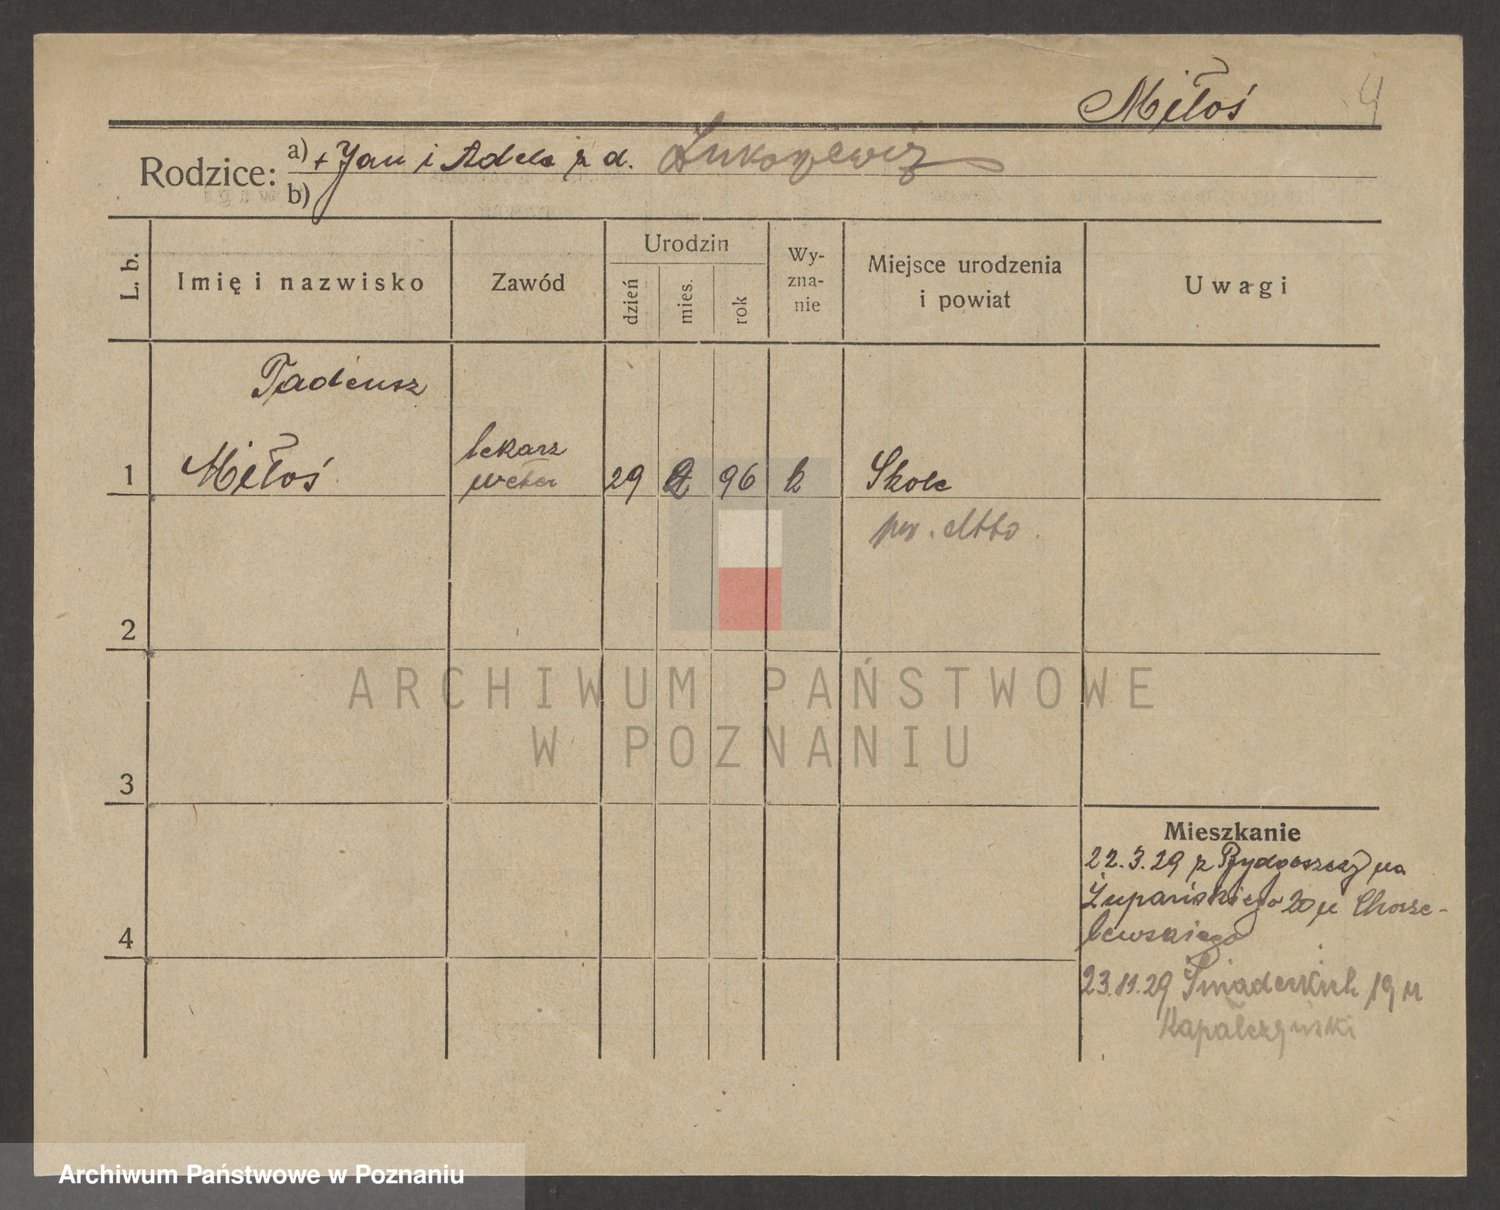 Miłoś
4
Rodzice: a) + Jan i Adela z d. Łukasiewicz
b)
L. b.
Imię i nazwisko
Zawód
Urodzin
dzień
mies.
rok
Wy-
zna-
nie
Miejsce urodzenia
i powiat
Uwagi
Tadeusz
1 Miłoś
lekarz
weter
29 2 96 k Skole
pow.
2
3
4
Mieszkanie
22.3.29 z Bydgoszczy na
Żupańskiego 20 u Chorze-
lewskiego
23.11.29 Śniadeckich 19 u
Kapalczyński
ARCHIWUM PAŃSTWOWE
W POZNANIU
Archiwum Państwowe w Poznaniu